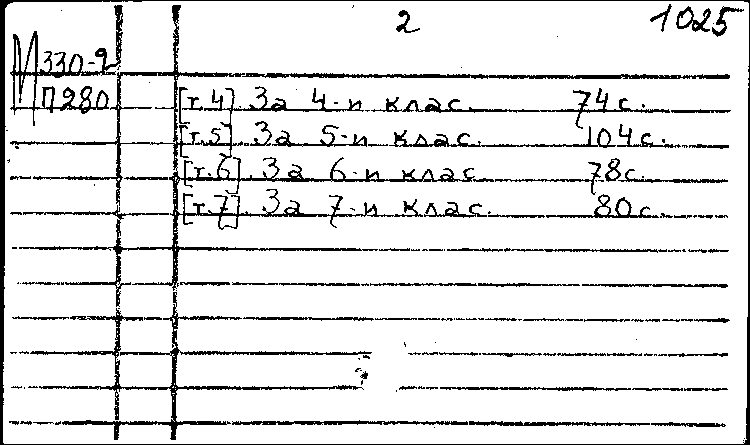 2 1025
И 330-2
П280
[т.4]. За 4-и клас. 74с.
[т.5]. За 5-и клас. 104с.
[т.6]. За 6-и клас. 78с.
[т.7]. За 7-и клас. 80с.